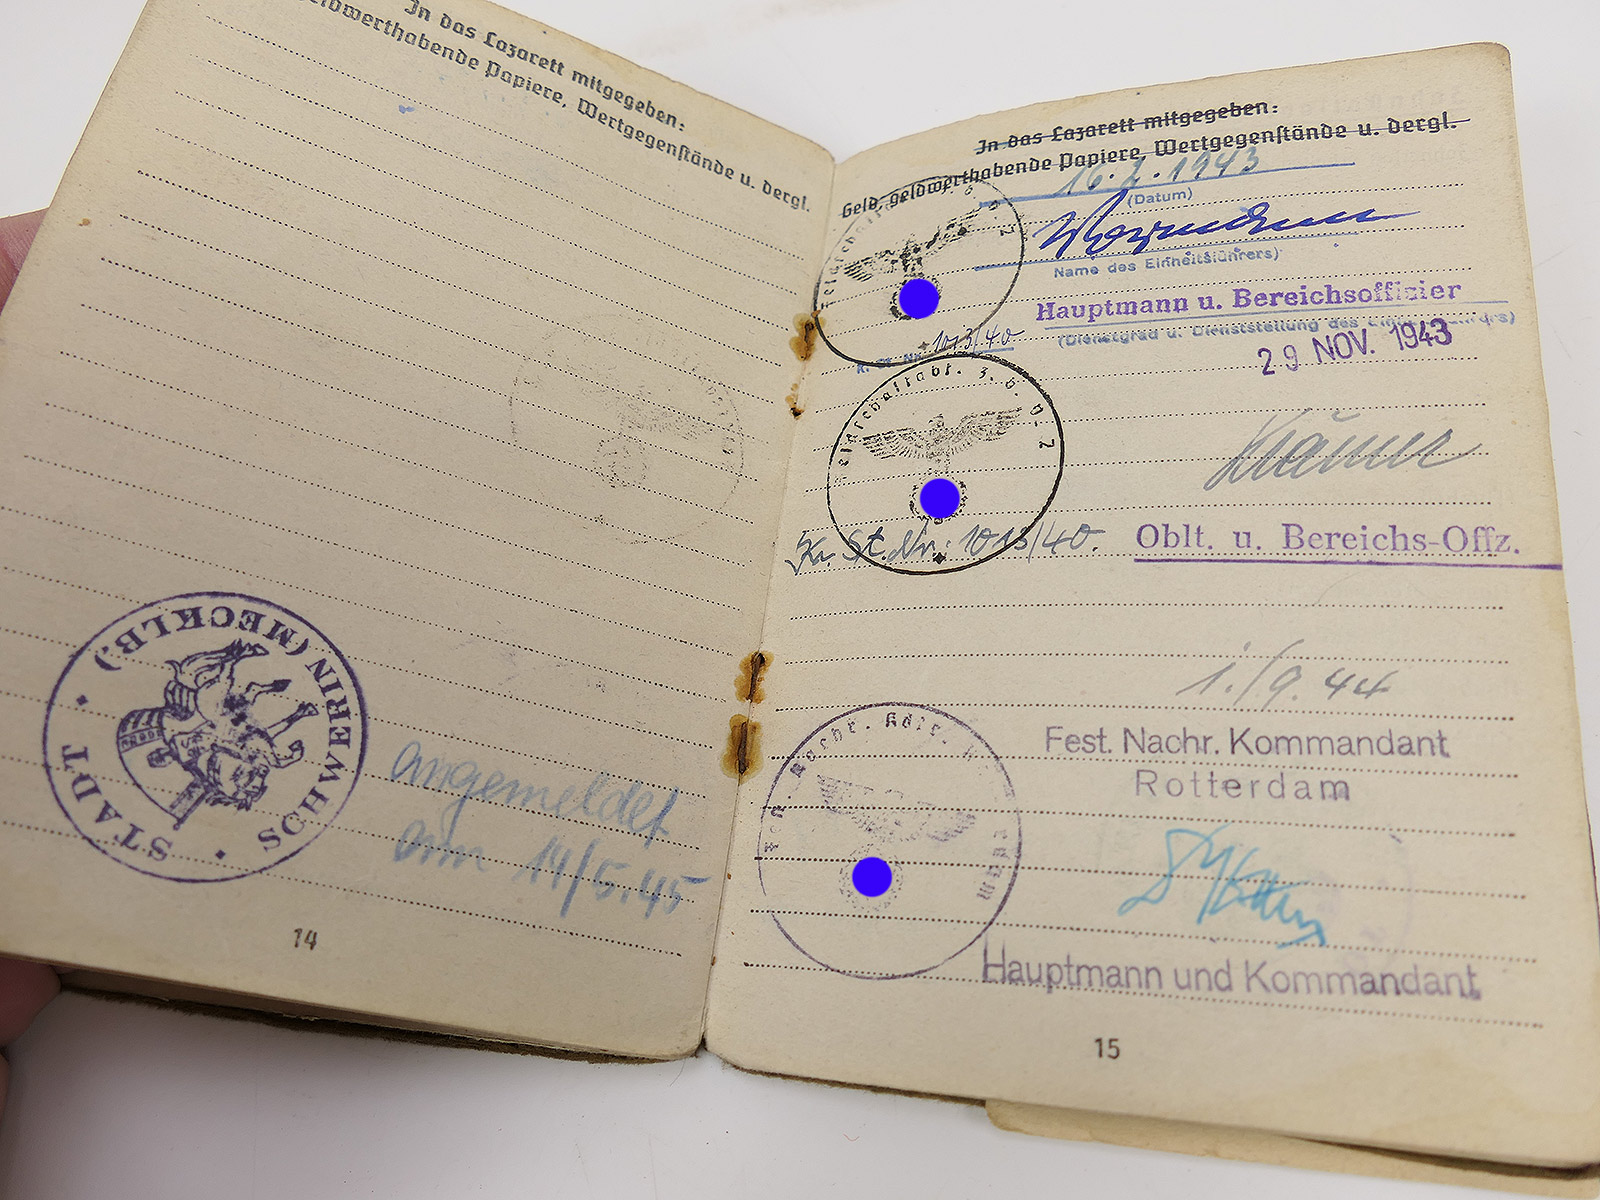 In das Lazarett mitgegeben:
geldwerthabende Papiere, Wertgegenstände u. dergl.
STADT SCHWERIN (MECKLB.)
angemeldet
am 14/5.45
14
In das Lazarett mitgegeben:
Geld, geldwerthabende Papiere, Wertgegenstände u. dergl.
16.2.1943
(Datum)
Name des Einheitsführers)
Hauptmann u. Bereichsoffizier
(Dienstgrad u. Dienststellung des Einheitsführers)
K. St. Nr. 1013/40
29 NOV. 1943
Feldschaltabt. z. b. V. 2
Krämer
Kr. St. Nr. 1013/40.
Oblt. u. Bereichs-Offz.
1./9.44
Fest. Nachr. Kommandant
Rotterdam
Hauptmann und Kommandant
15